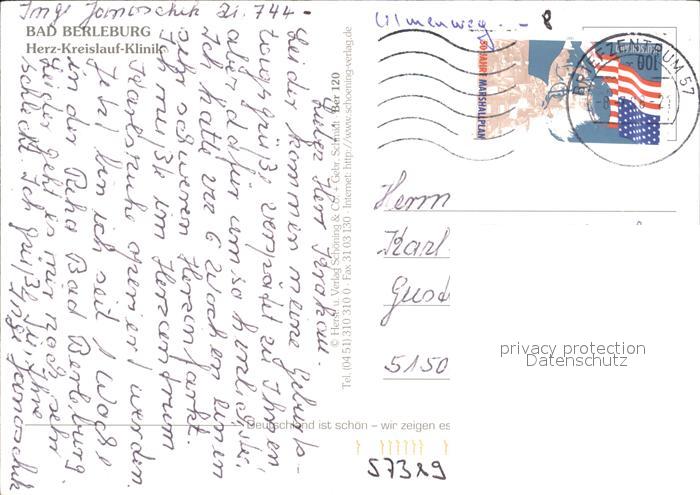 Inge Janoschek 21.744-
BAD BERLEBURG
Herz-Kreislauf-Klinik
Ulmenweg - 8
Lieber Herr
leider kommen meine Geburts-
tagsgrüße verspätet zu Ihnen
aber dafür um so herzlicher.
Ich hatte vor 6 Wochen einen
sehr schweren Herzinfarkt.
Ich mußte im Herzzentrum
Karlsruhe operiert werden.
Jetzt bin ich seit 1 Woche
in der Reha Bad Berleburg.
Leider geht es mir noch sehr
schlecht. Ich grüße Sie, Ihre
Inge Janoschek
© Herst. u. Verlag Schöning & Co + Gebr. Schmidt Ber 120
Tel. (04 51) 310 310 0 · Fax 31 03 130 · Internet: http://www.schoening-verlag.de
Deutschland ist schön – wir zeigen es
50 JAHRE MARSHALLPLAN
DEUTSCHLAND
100
BRIEFZENTRUM 57
Herrn
Karl
5150
privacy protection
Datenschutz
57329